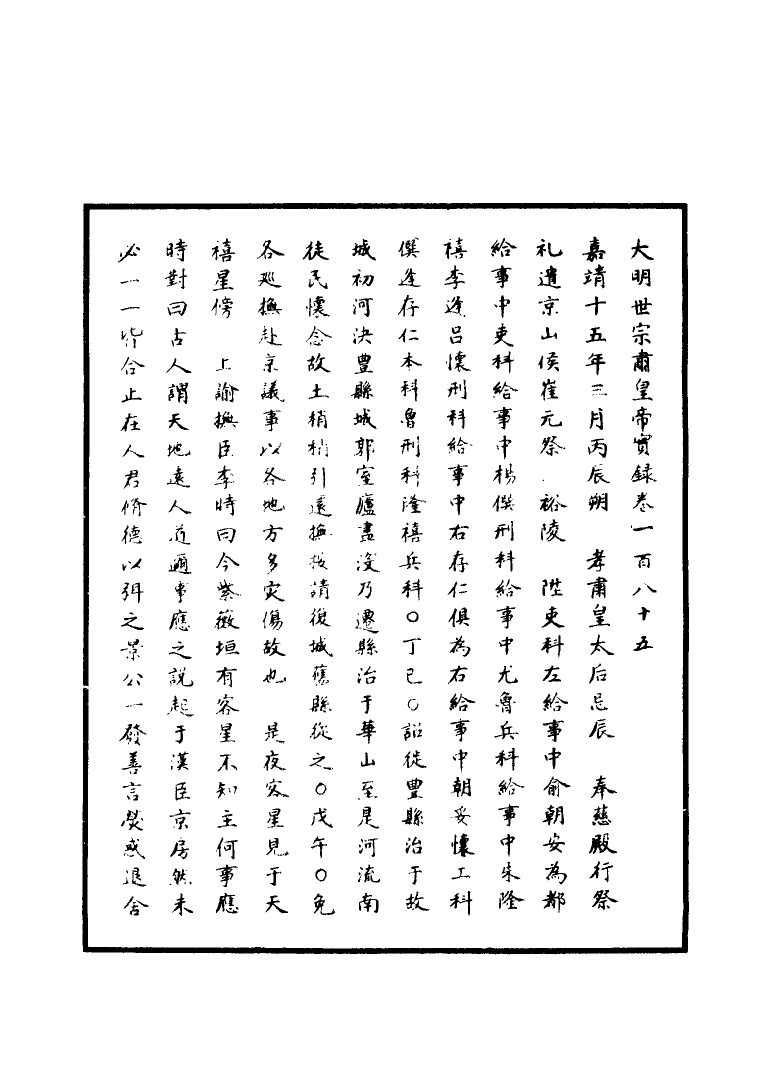 大明世宗肅皇帝實録卷一百八十五
嘉靖十五年三月丙辰朔　孝肅皇太后忌辰　奉慈殿行祭
礼遣京山侯崔元祭　裕陵　陞吏科左給事中俞朝安為都
給事中吏科給事中楊僎刑科給事中尤魯兵科給事中朱隆
禧李逢呂懷刑科給事中右存仁俱為右給事中朝妥懷工科
僎逢存仁本科魯刑科隆禧兵科○丁巳○詔徙豊縣治于故
城初河決豊縣城郭室廬盡没乃遷縣治于華山至是河流南
徒民懷念故土稍稍引還撫按請復城舊縣從之○戊午○免
各廵撫赴京議事以各地方多灾傷故也　是夜客星見于天
禧星傍　上諭撫臣李時曰今紫薇垣有客星不知主何事應
時對曰古人謂天地遠人道邇事應之說起于漢臣京房然未
必一一皆合止在人君脩德以弭之景公一發善言熒惑退舍